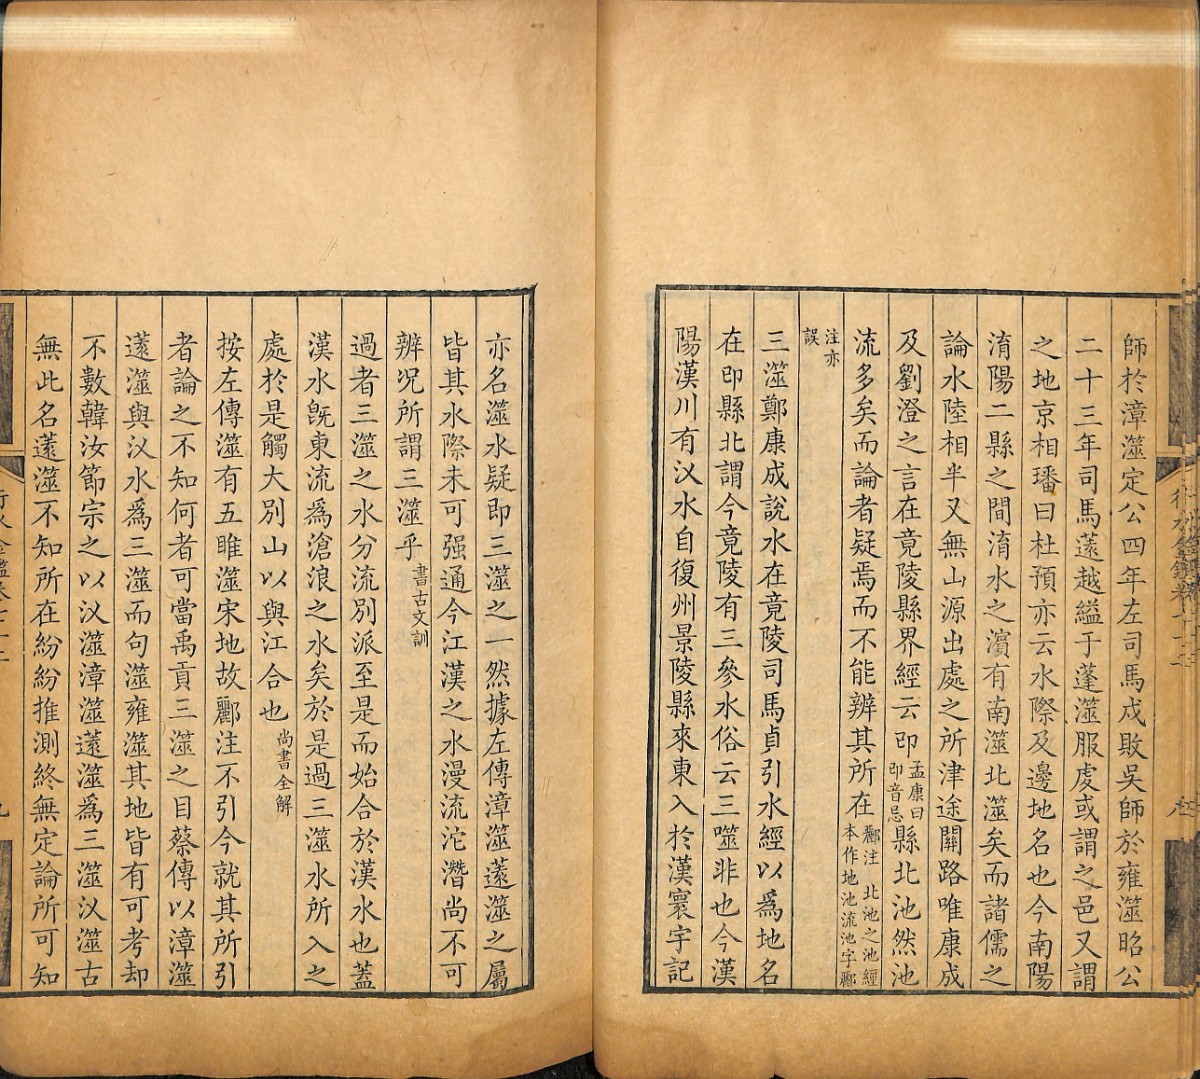 師於漳澨定公四年左司馬戍敗吳師於雍澨昭公
二十三年司馬薳越縊于薳澨服虔或謂之邑又謂
之地京相璠曰杜預亦云水際及邊地名也今南陽
淯陽二縣之間淯水之濱有南澨北澨矣而諸儒之
論水陸相半又無山源出處之所津途關路唯康成
及劉澄之言在竟陵縣界經云卽孟康曰卽音忌縣北池然池
流多矣而論者疑焉而不能辨其所在酈注北池之池經本作地池流池字酈
注亦誤
三澨鄭康成說水在竟陵司馬貞引水經以爲地名
在卽縣北謂今竟陵有三參水俗云三噬非也今漢
陽漢川有汊水自復州景陵縣來東入於漢寰宇記
亦名澨水疑卽三澨之一然據左傳漳澨薳澨之屬
皆其水際未可强通今江漢之水漫流沱潛尚不可
辨况所謂三澨乎書古文訓
過者三澨之水分流別派至是而始合於漢水也蓋
漢水旣東流爲滄浪之水矣於是過三澨水所入之
處於是觸大別山以與江合也尚書全解
按左傳澨有五睢澨宋地故酈注不引今就其所引
者論之不知何者可當禹貢三澨之目蔡傳以漳澨
薳澨與汊水爲三澨而句澨雍澨其地皆有可考却
不數韓汝節宗之以汊澨漳澨薳澨爲三澨汊澨古
無此名薳澨不知所在紛紛推測終無定論所可知